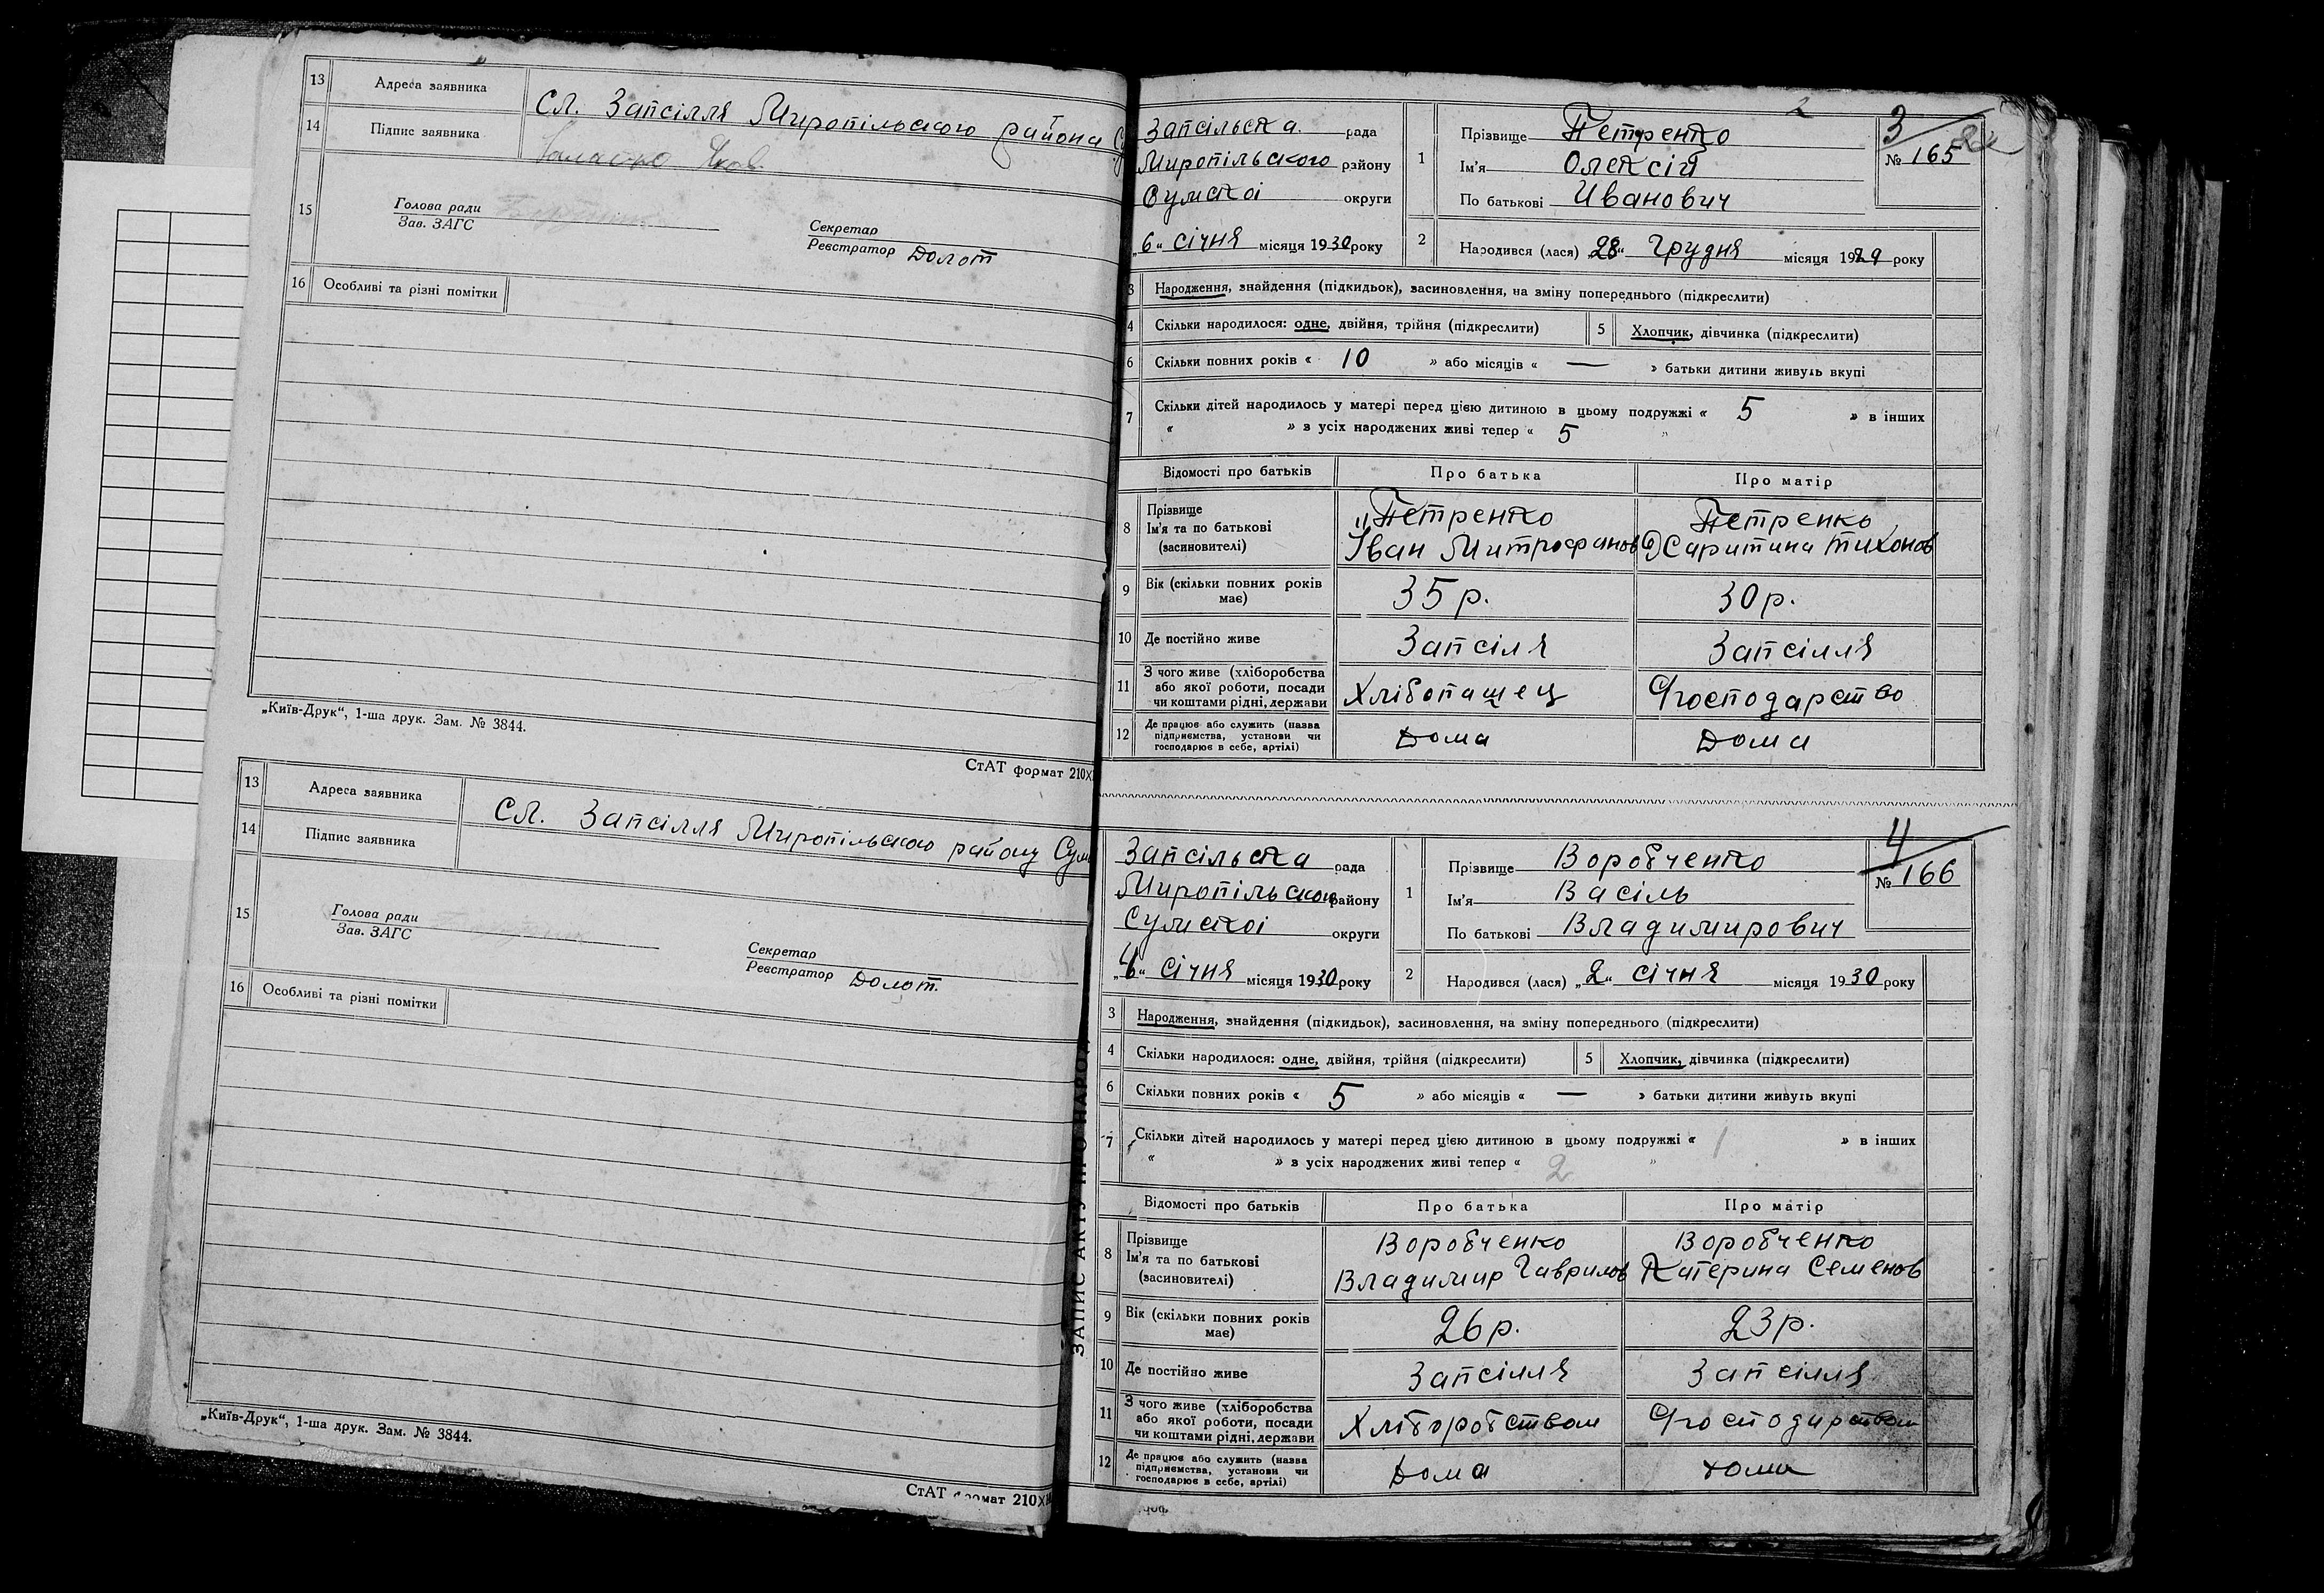 13 Адреса заявника Сл. Запсілля Миропільского района
14 Підпис заявника
15 Голова ради
Зав. ЗАГС
Секретар
Реєстратор Долот
16 Особливі та різні помітки
„Київ-Друк“, 1-ша друк. Зам. № 3844.
СтАТ формат 210Х
13 Адреса заявника Сл. Запсілля Миропільского району Сум
14 Підпис заявника
15 Голова ради
Зав. ЗАГС
Секретар
Реєстратор Долот.
16 Особливі та різні помітки
„Київ-Друк“, 1-ша друк. Зам. № 3844.
СтАТ формат 210Х
2
3
Запсільска. рада
Миропільского району
Сумскоі округи
„6“ січня місяця 1930 року
1 Прізвище Петренко
Ім'я Олексій
По батькові Иванович
№ 165
2 Народився (лася) „28“ Грудня місяця 1929 року
3 Народження, знайдення (підкидьок), засиновлення, на зміну попереднього (підкреслити)
4 Скільки народилося: одне, двійня, трійня (підкреслити) 5 Хлопчик, дівчинка (підкреслити)
6 Скільки повних років « 10 » або місяців « — » батьки дитини живуть вкупі
7 Скільки дітей народилось у матері перед цією дитиною в цьому подружжі « 5 » в інших
« » з усіх народжених живі тепер « 5 »
Відомості про батьків Про батька Про матір
8 Прізвище
Ім'я та по батькові
(засиновителі)
Петренко
Іван Митрофанов
Петренко
Тихонов
9 Вік (скільки повних років має) 35 р. 30 р.
10 Де постійно живе Запсіля Запсілля
11 З чого живе (хліборобства
або якої роботи, посади
чи коштами рідні, держави
Хлібопашец господарство
12 Де працює або служить (назва
підприємства, установи чи
господарює в себе, артілі)
Дома Дома
ЗАПИС АКТУ ПРО НАРОД
4
Запсільска рада
Миропільского району
Сумскоі округи
„6“ січня місяця 1930 року
1 Прізвище Воробченко
Ім'я Васіль
По батькові Владимирович
№ 166
2 Народився (лася) „2“ січня місяця 1930 року
3 Народження, знайдення (підкидьок), засиновлення, на зміну попереднього (підкреслити)
4 Скільки народилося: одне, двійня, трійня (підкреслити) 5 Хлопчик, дівчинка (підкреслити)
6 Скільки повних років « 5 » або місяців « — » батьки дитини живуть вкупі
7 Скільки дітей народилось у матері перед цією дитиною в цьому подружжі « 1 » в інших
« » з усіх народжених живі тепер « 2 »
Відомості про батьків Про батька Про матір
8 Прізвище
Ім'я та по батькові
(засиновителі)
Воробченко
Владимир Гаврилов
Воробченко
Катерина Семенов
9 Вік (скільки повних років має) 26 р. 23 р.
10 Де постійно живе Запсілля Запсілля
11 З чого живе (хліборобства
або якої роботи, посади
чи коштами рідні, держави
Хліборобством господарством
12 Де працює або служить (назва
підприємства, установи чи
господарює в себе, артілі)
Дома дома